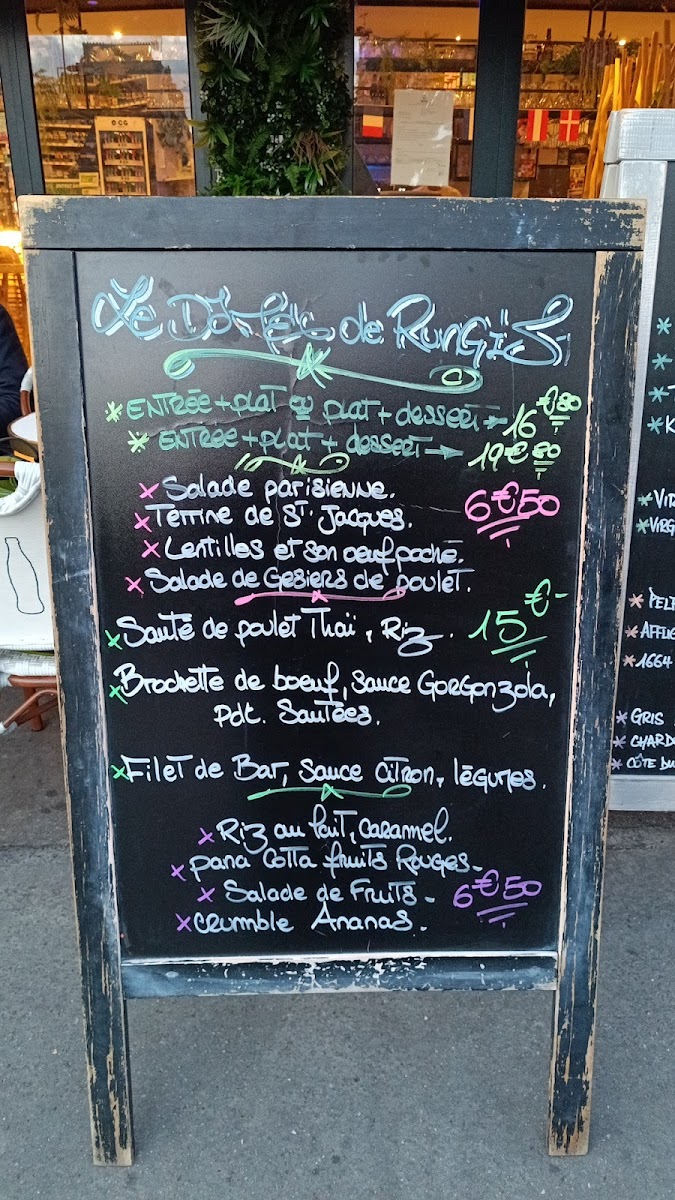 Le Dôme's de Rungis
* ENTRÉE + plat ou plat + dessert → 16€80
* ENTREE + plat + dessert → 19€80
x Salade parisienne.
x Terrine de St Jacques. 6€50
x Lentilles et son oeuf poché.
x Salade de Gesiers de poulet.
x Sauté de poulet Thaï, Riz. 15€-
x Brochette de boeuf, sauce Gorgonzola,
Pdt. Sautées.
x Filet de Bar, Sauce Citron, légumes.
x Riz au lait, caramel.
x pana Cotta fruits Rouges-
x Salade de Fruits - 6€50
x crumble Ananas.
* VIR
* VIRG
* PELF
* AFFLIG
* 1664
* GRIS
* CHARDO
* CÔTE DU